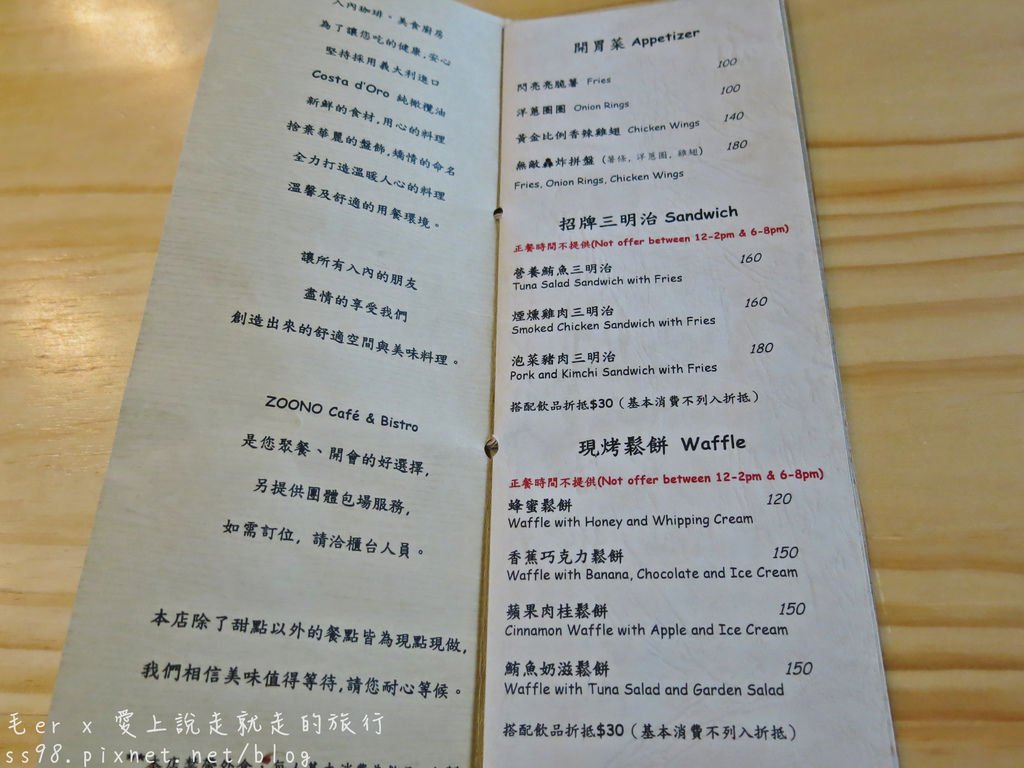 入內咖啡、美食廚房
為了讓您吃的健康,安心
堅持採用義大利進口
Costa d'Oro 純橄欖油
新鮮的食材,用心的料理
捨棄華麗的盤飾,矯情的命名
全力打造溫暖人心的料理
溫馨及舒適的用餐環境。
讓所有入內的朋友
盡情的享受我們
創造出來的舒適空間與美味料理。
ZOONO Café & Bistro
是您聚餐、開會的好選擇,
另提供團體包場服務,
如需訂位, 請洽櫃台人員。
本店除了甜點以外的餐點皆為現點現做,
我們相信美味值得等待,請您耐心等候。
開胃菜 Appetizer
閃亮亮脆薯 Fries 100
洋蔥圈圈 Onion Rings 100
黃金比例香辣雞翅 Chicken Wings 140
無敵轟炸拼盤 (薯條, 洋蔥圈, 雞翅) 180
Fries, Onion Rings, Chicken Wings
招牌三明治 Sandwich
正餐時間不提供(Not offer between 12-2pm & 6-8pm)
營養鮪魚三明治 160
Tuna Salad Sandwich with Fries
煙燻雞肉三明治 160
Smoked Chicken Sandwich with Fries
泡菜豬肉三明治 180
Pork and Kimchi Sandwich with Fries
搭配飲品折抵$30 (基本消費不列入折抵)
現烤鬆餅 Waffle
正餐時間不提供(Not offer between 12-2pm & 6-8pm)
蜂蜜鬆餅 120
Waffle with Honey and Whipping Cream
香蕉巧克力鬆餅 150
Waffle with Banana, Chocolate and Ice Cream
蘋果肉桂鬆餅 150
Cinnamon Waffle with Apple and Ice Cream
鮪魚奶滋鬆餅 150
Waffle with Tuna Salad and Garden Salad
搭配飲品折抵$30 (基本消費不列入折抵)
毛er x 愛上說走就走的旅行
ss98.pixnet.net/blog